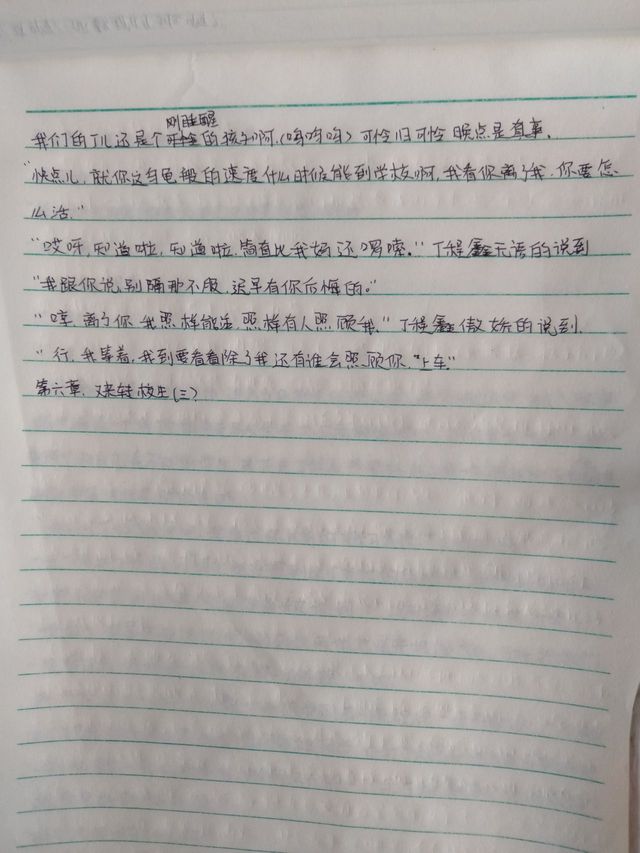 刚睡醒
我们的丁儿还是个可怜的孩子啊,(呜呜呜)可怜归可怜 晚点是真事.
"快点儿,就你这乌龟般的速度什么时候能到学校啊,我看你离了我,你要怎
么活."
"哎呀,知道啦,知道啦,简直比我妈还啰嗦."丁程鑫无语的说到
"我跟你说,别隔那不服,迟早有你后悔的."
"哼,离了你 我照样能活,照样有人照顾我."丁程鑫傲娇的说到.
"行,我等着,我到要看看除了我还有谁会照顾你,"上车"
第六章. 转校生(三)